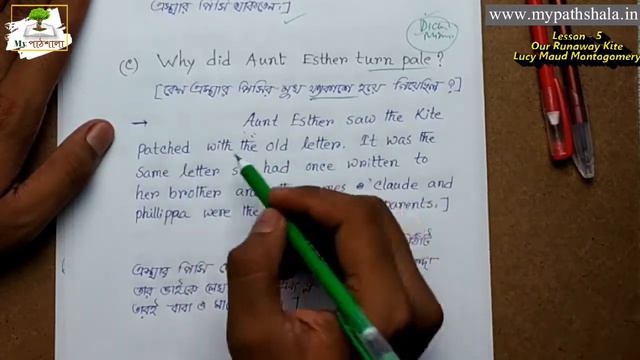 এস্থার পিসি থাকলেন।]
www.mypathshala.in
My পাঠশালা
Lesson - 5
Our Runaway Kite
Lucy Maud Montogomery
(c) Why did Aunt Esther turn pale?
[কেন এস্থার পিসির মুখ ফ্যাকাশে হয়ে গিয়েছিল?]
→ Aunt Esther saw the Kite
patched with the old letter. It was the
same letter had once written to
her brother 'Claude and
phillippa were the parents.]
এস্থার পিসি
তার ভাইকে
তারই বাবা ও